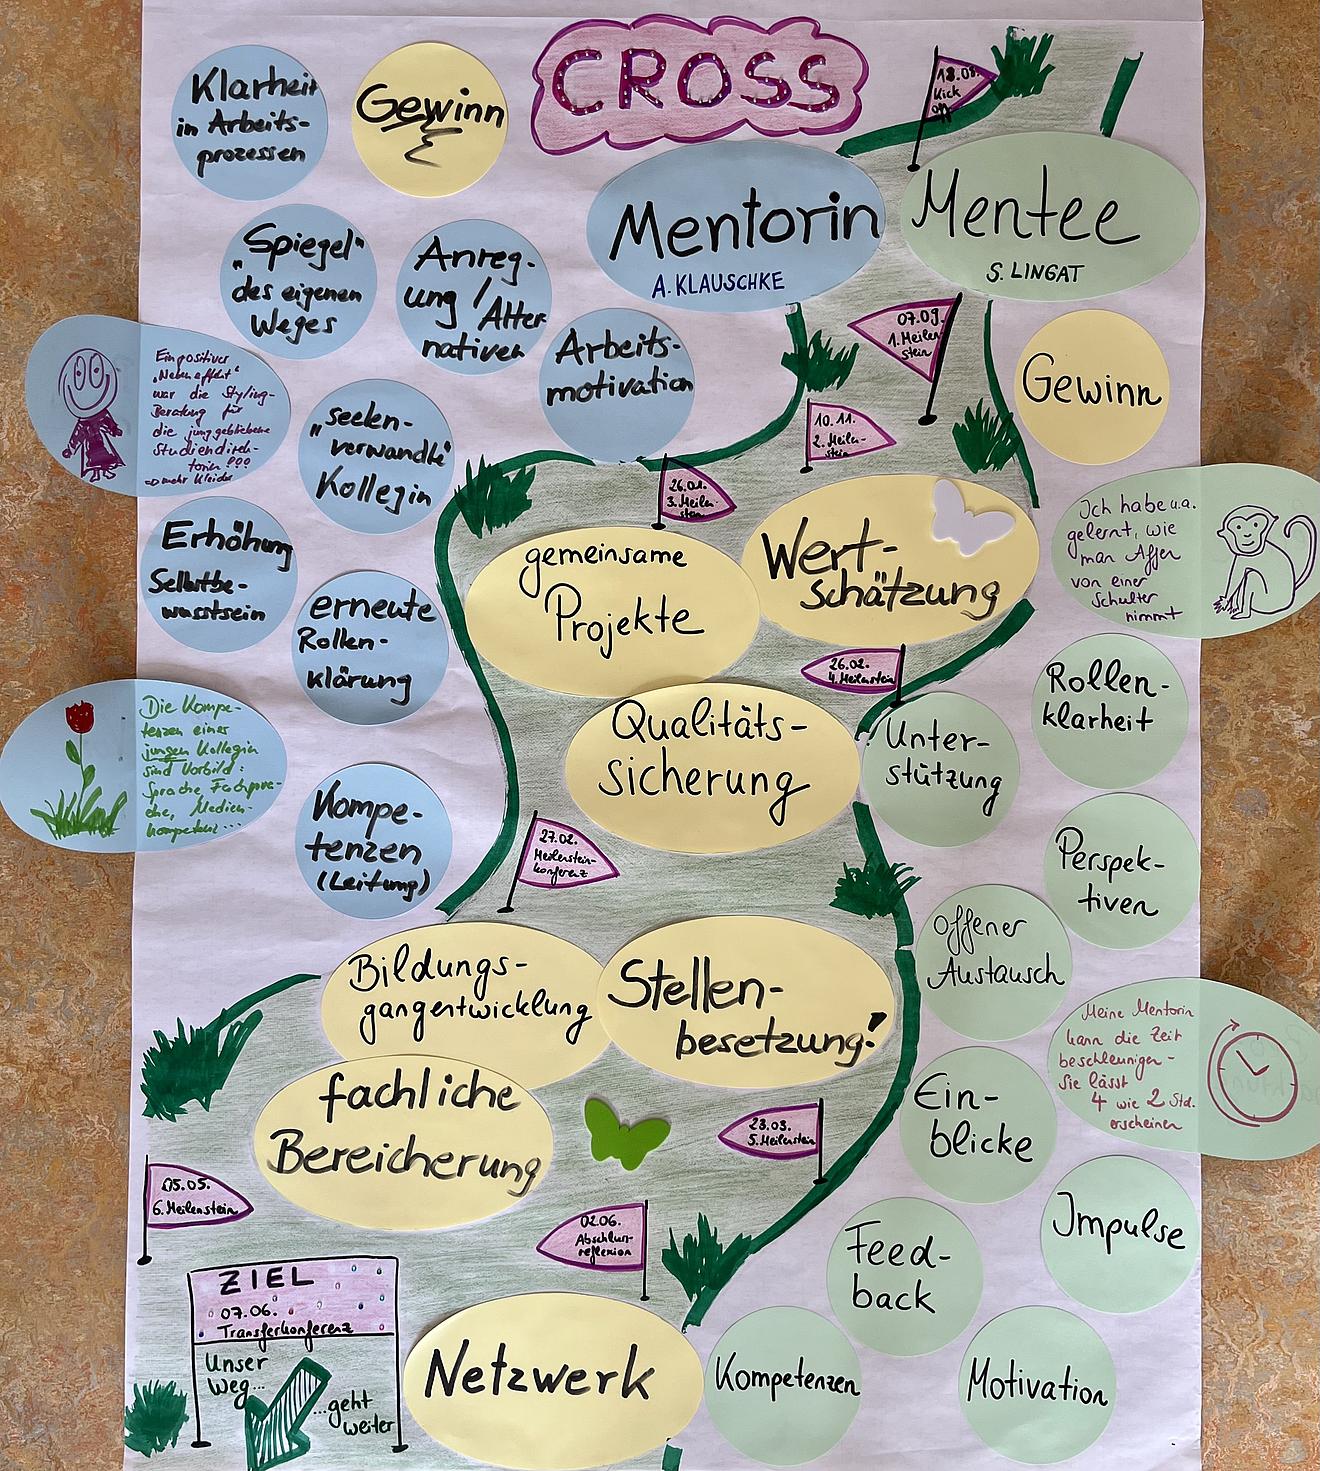 CROSS
18.09.
Kick
off
Klarheit
in Arbeits-
prozessen
Gewinn
Mentorin
A. KLAUSCHKE
Mentee
S. LINGAT
"Spiegel"
des eigenen
Weges
Anreg-
ung /
Alter
nativen
Arbeits-
motivation
07.09.
1. Meilen
stein
Gewinn
Ein positiver
"Nebeneffekt"
war die Styling-
Beratung für
die junggebliebene
Studiendirek-
torin !!!
=> mehr Kleider
"seelen-
verwandte"
Kollegin
10.11.
2. Meilen-
stein
26.01.
3. Meilen-
stein
Erhöhung
Selbstbe-
wusstsein
gemeinsame
Projekte
Wert-
schätzung
Ich habe u.a.
gelernt, wie
man Affen
von einer
Schulter
nimmt
erneute
Rollen-
klärung
26.02.
4. Meilenstein
Rollen-
klarheit
Die Kompe-
tenzen einer
jungen Kollegin
sind Vorbild:
Sprache, Fachspra-
che, Medien-
kompetenz...
Qualitäts-
sicherung
Unter-
stützung
Kompe-
tenzen
(Leitung)
27.02.
Meilenstein-
konferenz
Perspek-
tiven
offener
Austausch
Bildungs-
gangentwicklung
Stellen-
besetzung!
Meine Mentorin
kann die Zeit
beschleunigen -
Sie lässt
4 wie 2 Std.
erscheinen
fachliche
Bereicherung
Ein-
blicke
23.03.
5. Meilenstein
05.05.
6. Meilenstein
02.06.
Abschluss-
reflexion
Impulse
Feed-
back
ZIEL
07.06.
Transferkonferenz
Unser
Weg...
...geht
weiter
Netzwerk
Kompetenzen
Motivation